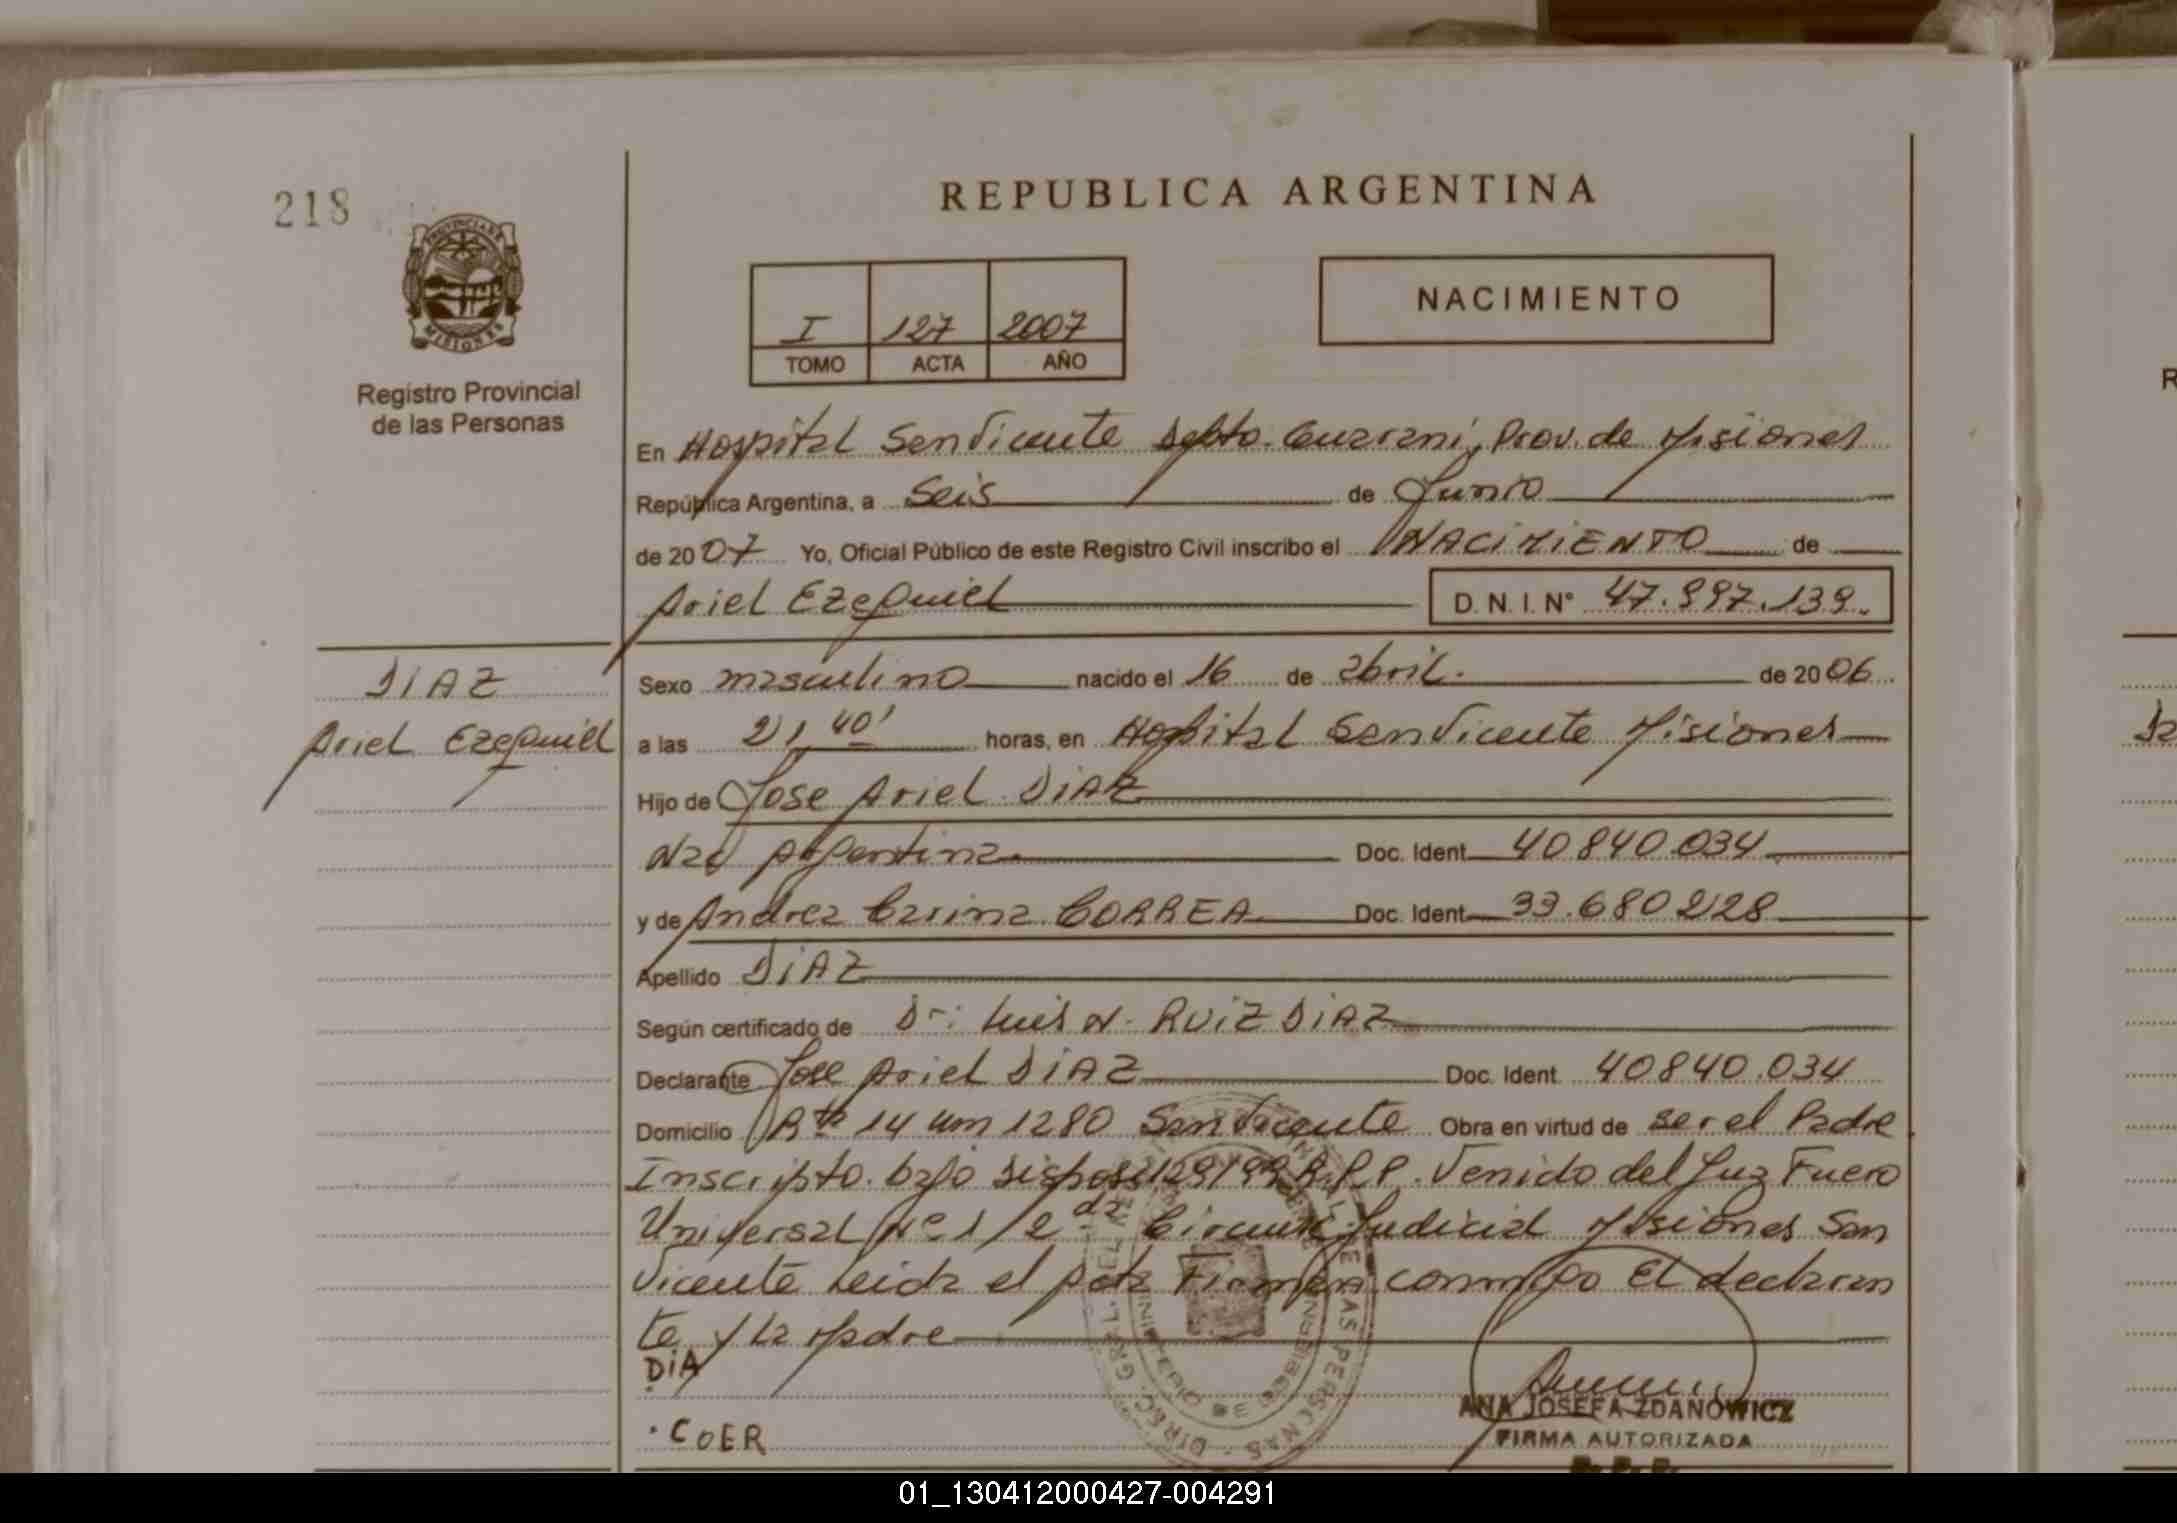 REPUBLICA ARGENTINA
218
PROVINCIA DE
MISIONES
Registro Provincial
de las Personas
I 127 2007
TOMO ACTA AÑO
NACIMIENTO
En Hospital San Vicente Depto. Guarani, Prov. de Misiones
República Argentina, a Seis de Junio
de 2007 Yo, Oficial Público de este Registro Civil inscribo el NACIMIENTO de
Ariel Ezequiel D. N. I. Nº 47.997.139.
DIAZ
Ariel Ezequiel
Sexo masculino nacido el 16 de abril. de 2006
a las 21,40' horas, en Hospital San Vicente Misiones
Hijo de Jose Ariel DIAZ
Nac Argentina Doc. Ident 40840.034
y de Andrea Carina CORREA Doc. Ident 33.680228
Apellido DIAZ
Según certificado de Dr: Luis N. RUIZ DIAZ
Declarante Jose Ariel DIAZ Doc. Ident 40840.034
Domicilio Rta 14 Km 1280 San Vicente Obra en virtud de ser el Padre
Inscripto. bajo Dispos 129/99 R.P.P. Venido del Juz Fuero
Universal Nº 1 / 2da Circuns Judicial Misiones San
Vicente Leida el Acta Firman conmigo El declaran
te y La Madre
DIA
COER
ANA JOSEFA ZDANOWICZ
FIRMA AUTORIZADA
01_130412000427-004291